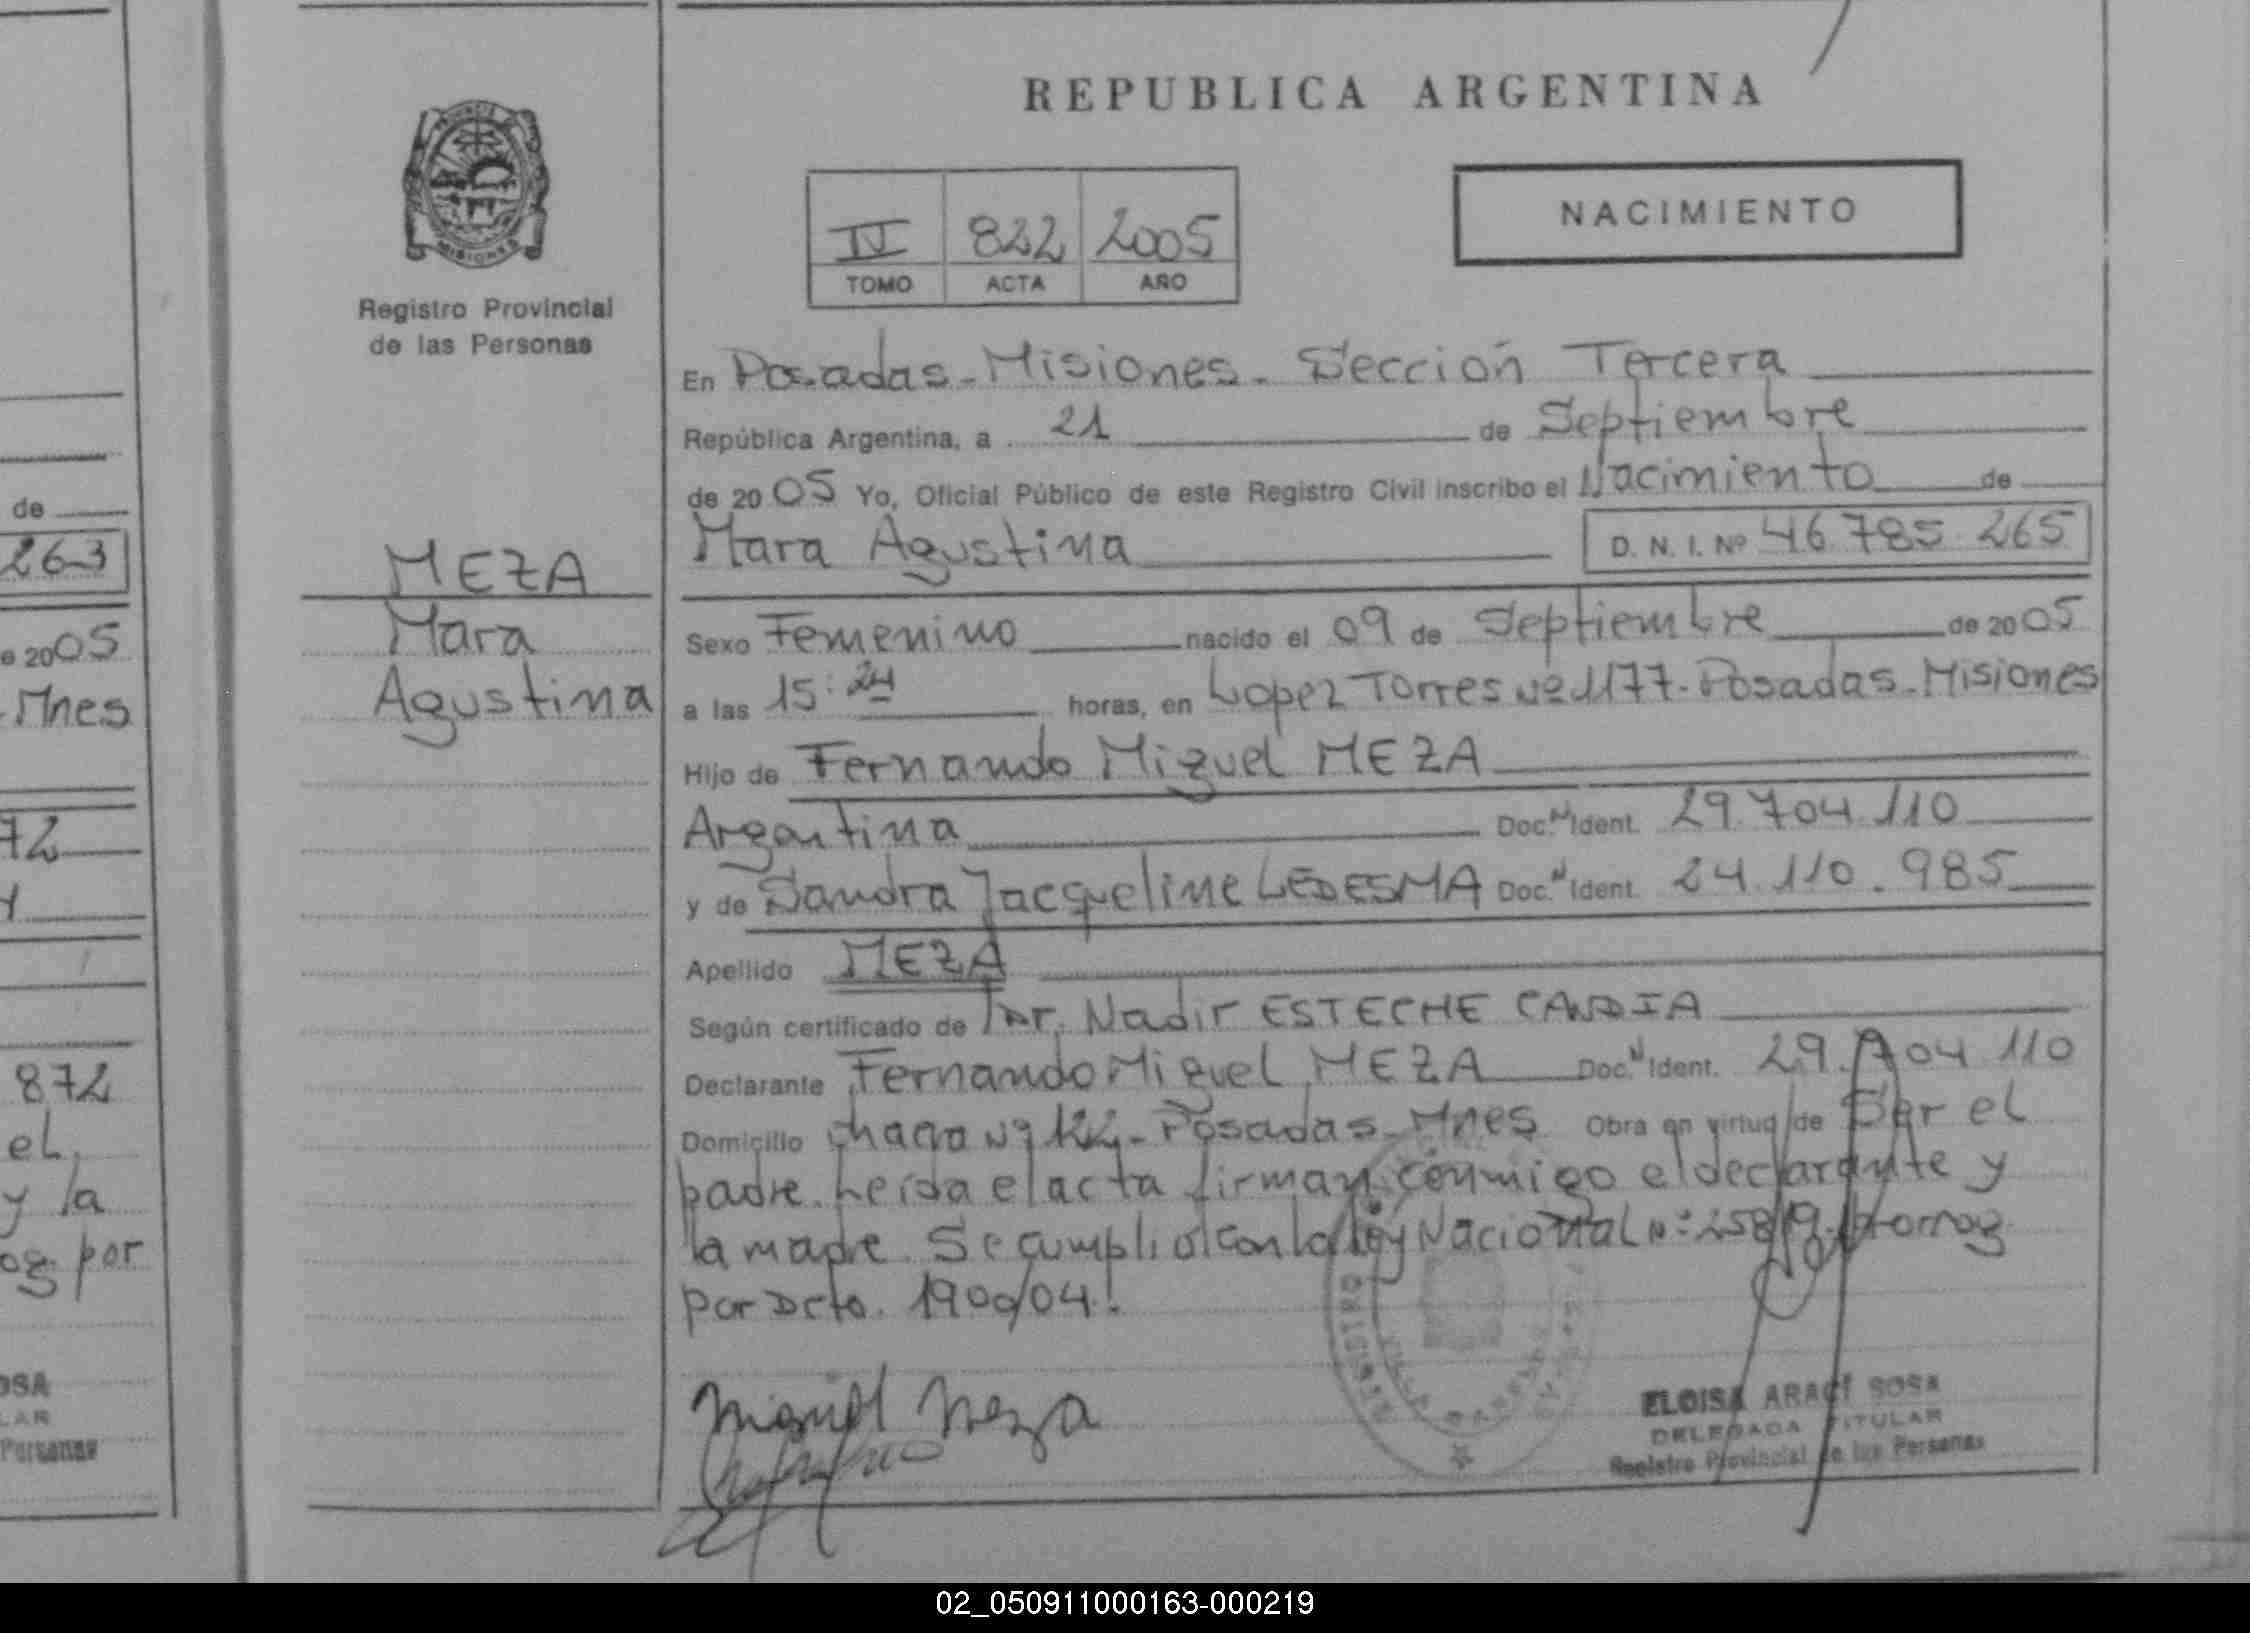 REPUBLICA ARGENTINA
PROVINCIA DE
MISIONES
Registro Provincial
de las Personas
IV 822 2005
TOMO ACTA AÑO
NACIMIENTO
En Posadas - Misiones - Sección Tercera
República Argentina, a 21 de Septiembre
de 2005 Yo, Oficial Público de este Registro Civil inscribo el Nacimiento de
Mara Agustina D. N. I. Nº 46.785.265
MEZA
Mara
Agustina
Sexo Femenino nacido el 09 de Septiembre de 2005
a las 15:24 horas, en Lopez Torres Nº 1177 - Posadas - Misiones
Hijo de Fernando Miguel MEZA
Argentina Doc. Ident. 29.704.110
y de Sandra Jacqueline LEDESMA Doc. Ident. 24.110.985
Apellido MEZA
Según certificado de Dr. Nadir ESTECHE CANDIA
Declarante Fernando Miguel MEZA Doc. Ident. 29.704.110
Domicilio chacra Nº - Posadas - Mnes Obra en virtud de Ser el
padre. Leída el acta firman conmigo el declarante y
la madre. Se cumplió con la Ley Nacional Nº
por Dcto. 1900/04.
Miguel Meza
ELOISA ARACÍ SOSA
DELEGADA TITULAR
Registro Provincial de las Personas
de
263
e 2005
- Mnes
72
872
el
y la
por
OSA
LAR
Personas
02_050911000163-000219